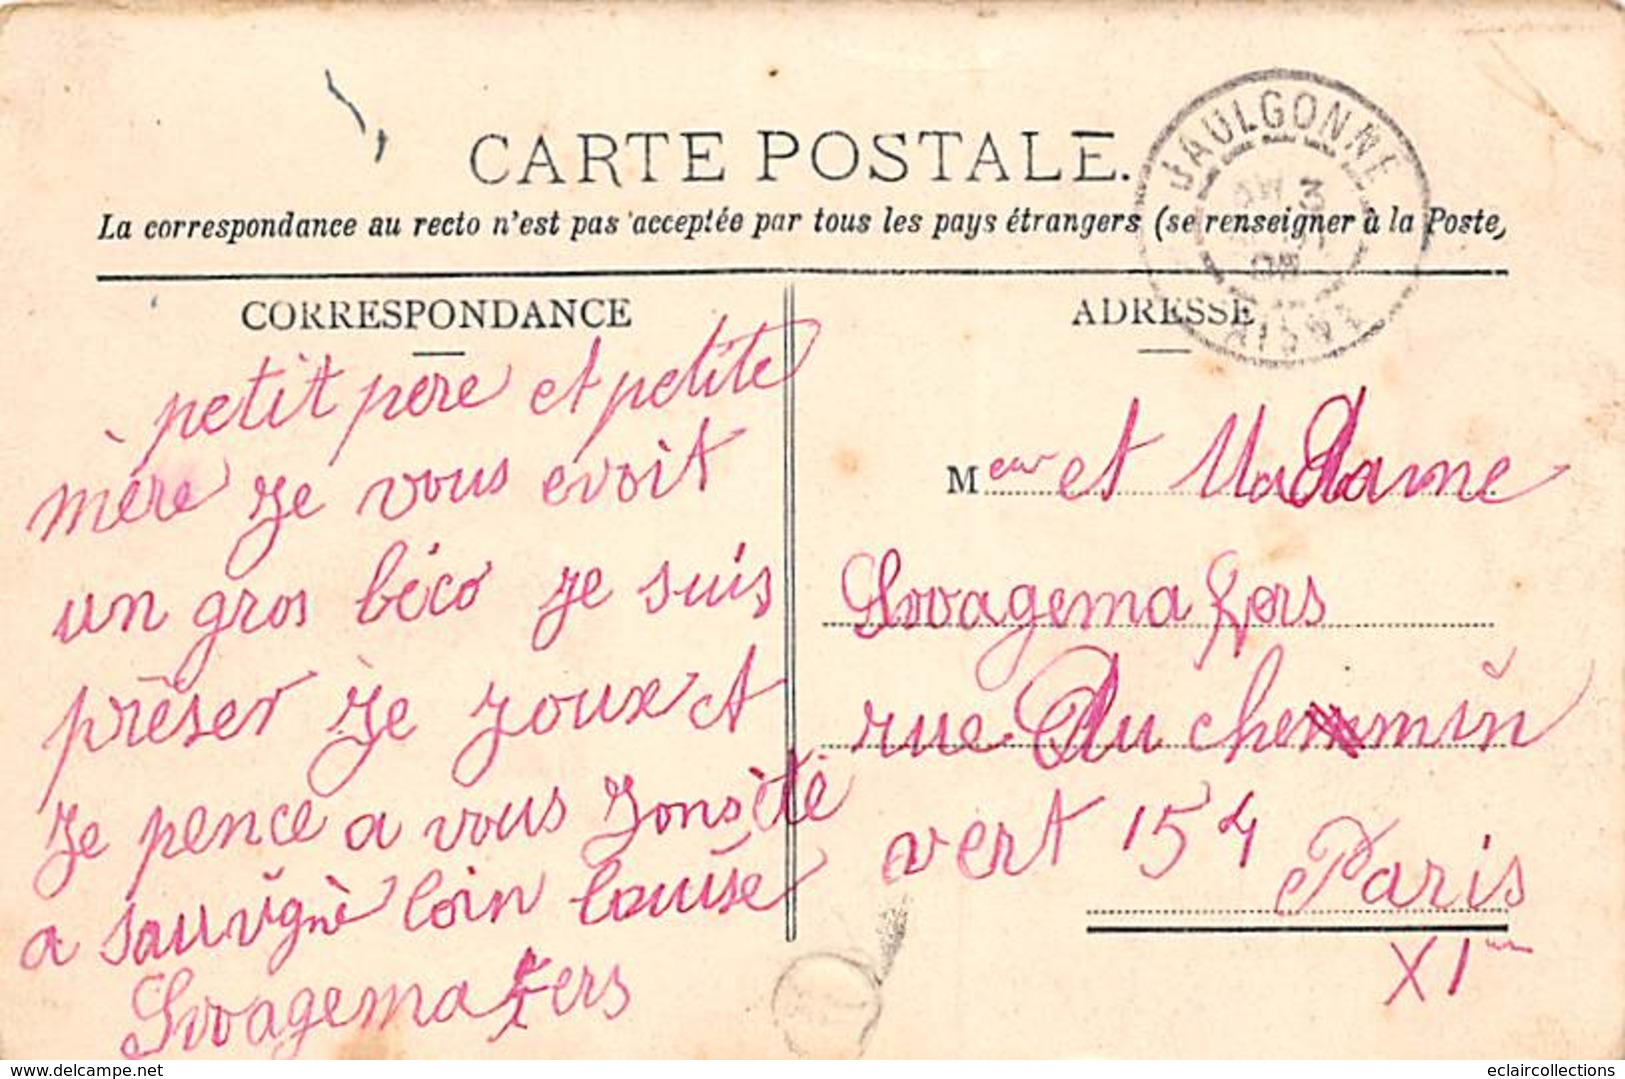 CARTE POSTALE.
La correspondance au recto n'est pas acceptée par tous les pays étrangers (se renseigner à la Poste,
JAULGONNE
3
08
AISNE
CORRESPONDANCE
petit pere et petite
mère je vous evoit
un gros béco je suis
prêser je joux et
je pence a vous
a sauvigne loin louise
Lovagemakers
ADRESSE
Meur et Madame
Lovagemakers
rue Du chemmin
vert 154
Paris
XIme
www.delcampe.net
eclaircollections